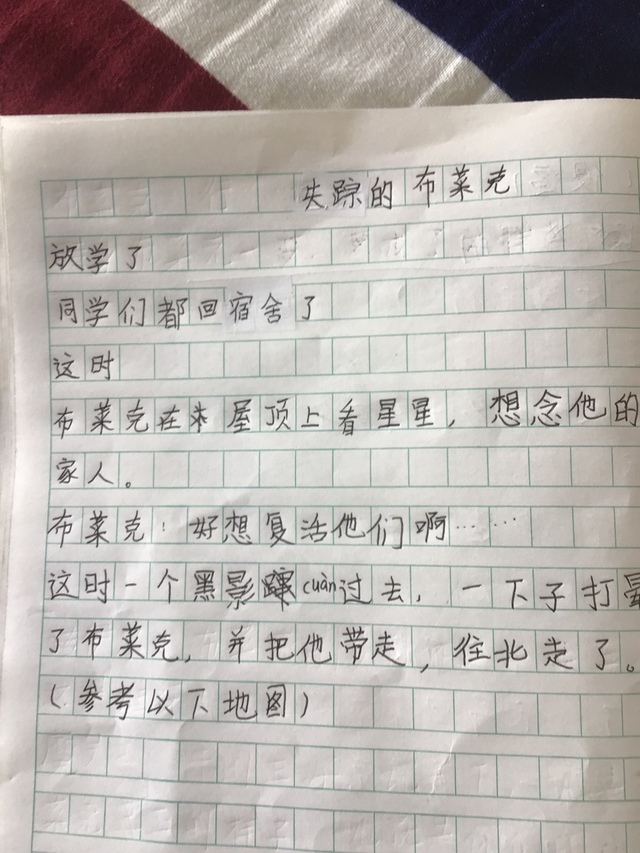 失踪的布莱克
放学了
同学们都回宿舍了
这时
布莱克在屋顶上看星星，想念他的
家人。
布莱克：好想复活他们啊……
这时一个黑影cuàn过去，一下子打晕
了布莱克，并把他带走，往北走了。
（参考以下地图）